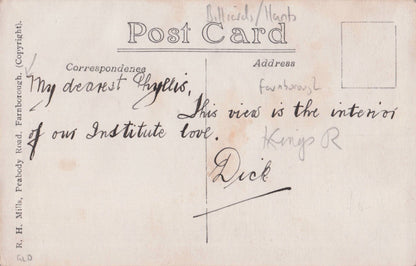 Billiards/Hants
Post Card
Correspondence
Address
Farnborough
My dearest Phyllis,
This view is the interior
of our Institute love.
Kings R
Dick
R. H. Mills, Peabody Road, Farnborough. (Copyright).
GLD